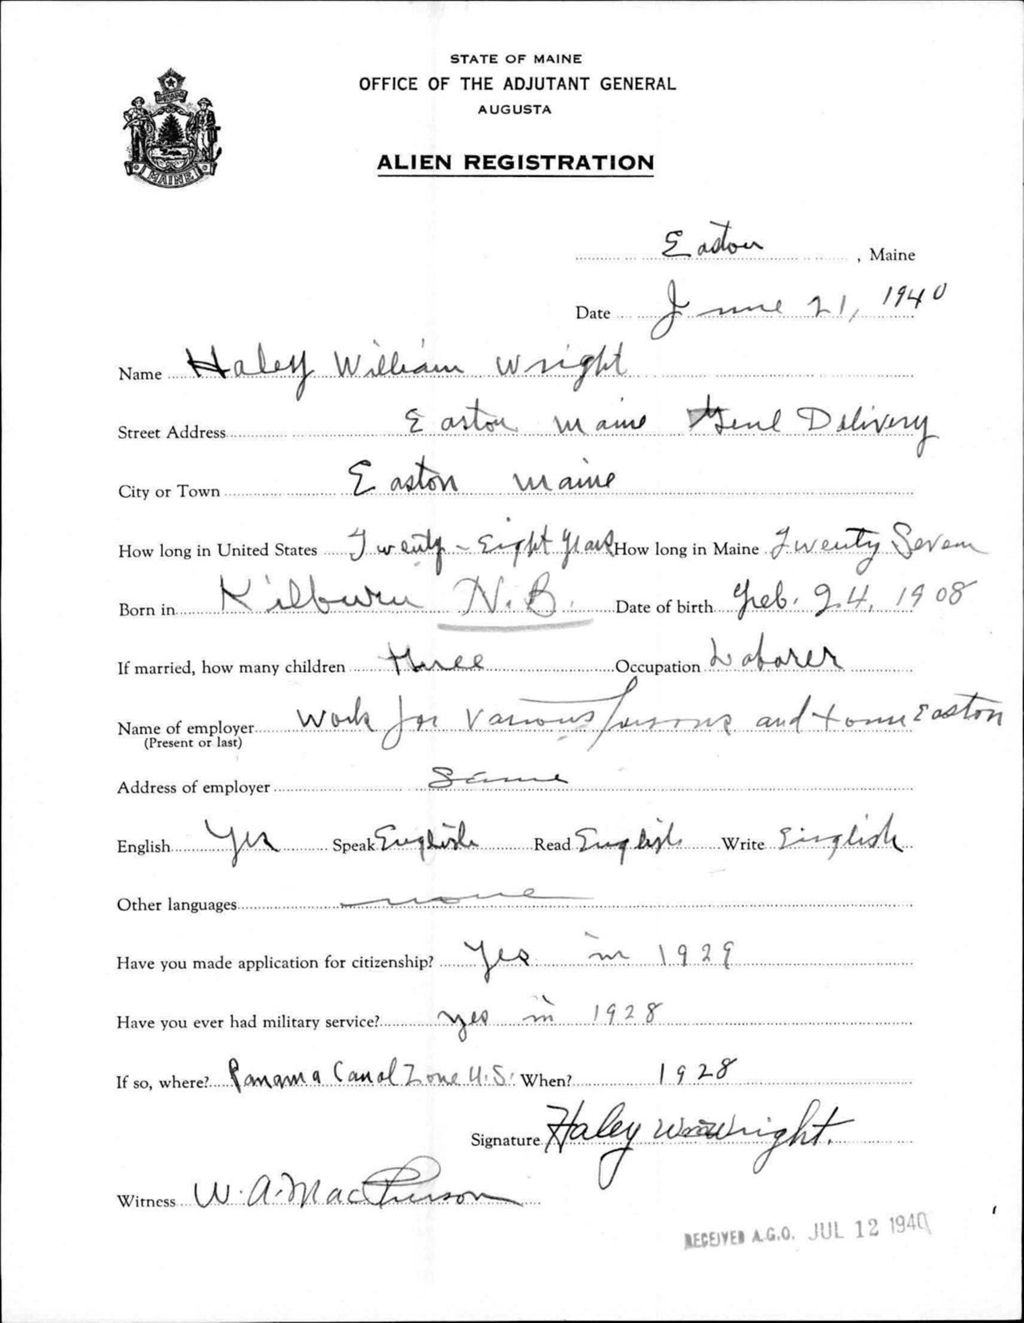 STATE OF MAINE
OFFICE OF THE ADJUTANT GENERAL
AUGUSTA
ALIEN REGISTRATION
MAINE
Easton, Maine
Date June 21, 1940
Name Haley William Wright
Street Address Easton Maine Genl Delivery
City or Town Easton Maine
How long in United States Twenty-Eight Years How long in Maine Twenty Seven
Born in Kilburn N.B. Date of birth Feb. 24, 1908
If married, how many children three Occupation Laborer
Name of employer Work for various persons and town Easton
(Present or last)
Address of employer Same
English Yes Speak English Read English Write Einglish
Other languages none
Have you made application for citizenship? Yes in 1929
Have you ever had military service? yes in 1928
If so, where? Panama Canal Zone U.S. When? 1928
Signature Haley Wright.
Witness W. A. MacPherson
RECEIVED A.G.O. JUL 12 1940